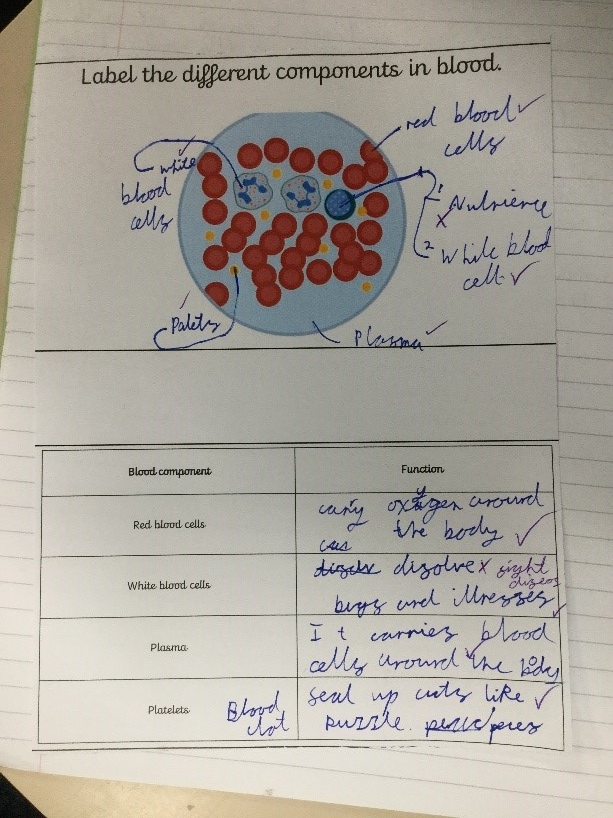 Label the different components in blood.
red blood
cells
white
blood
cells
1 Nutrience
2 White blood
cell
Palets
Plasma
Blood component
Function
Red blood cells
carry oxygen around
the body
White blood cells
dizolve
bugs and illnesses
Plasma
It carries blood
cells around the body
Platelets
Blood
clot
seal up cuts like
puzzle